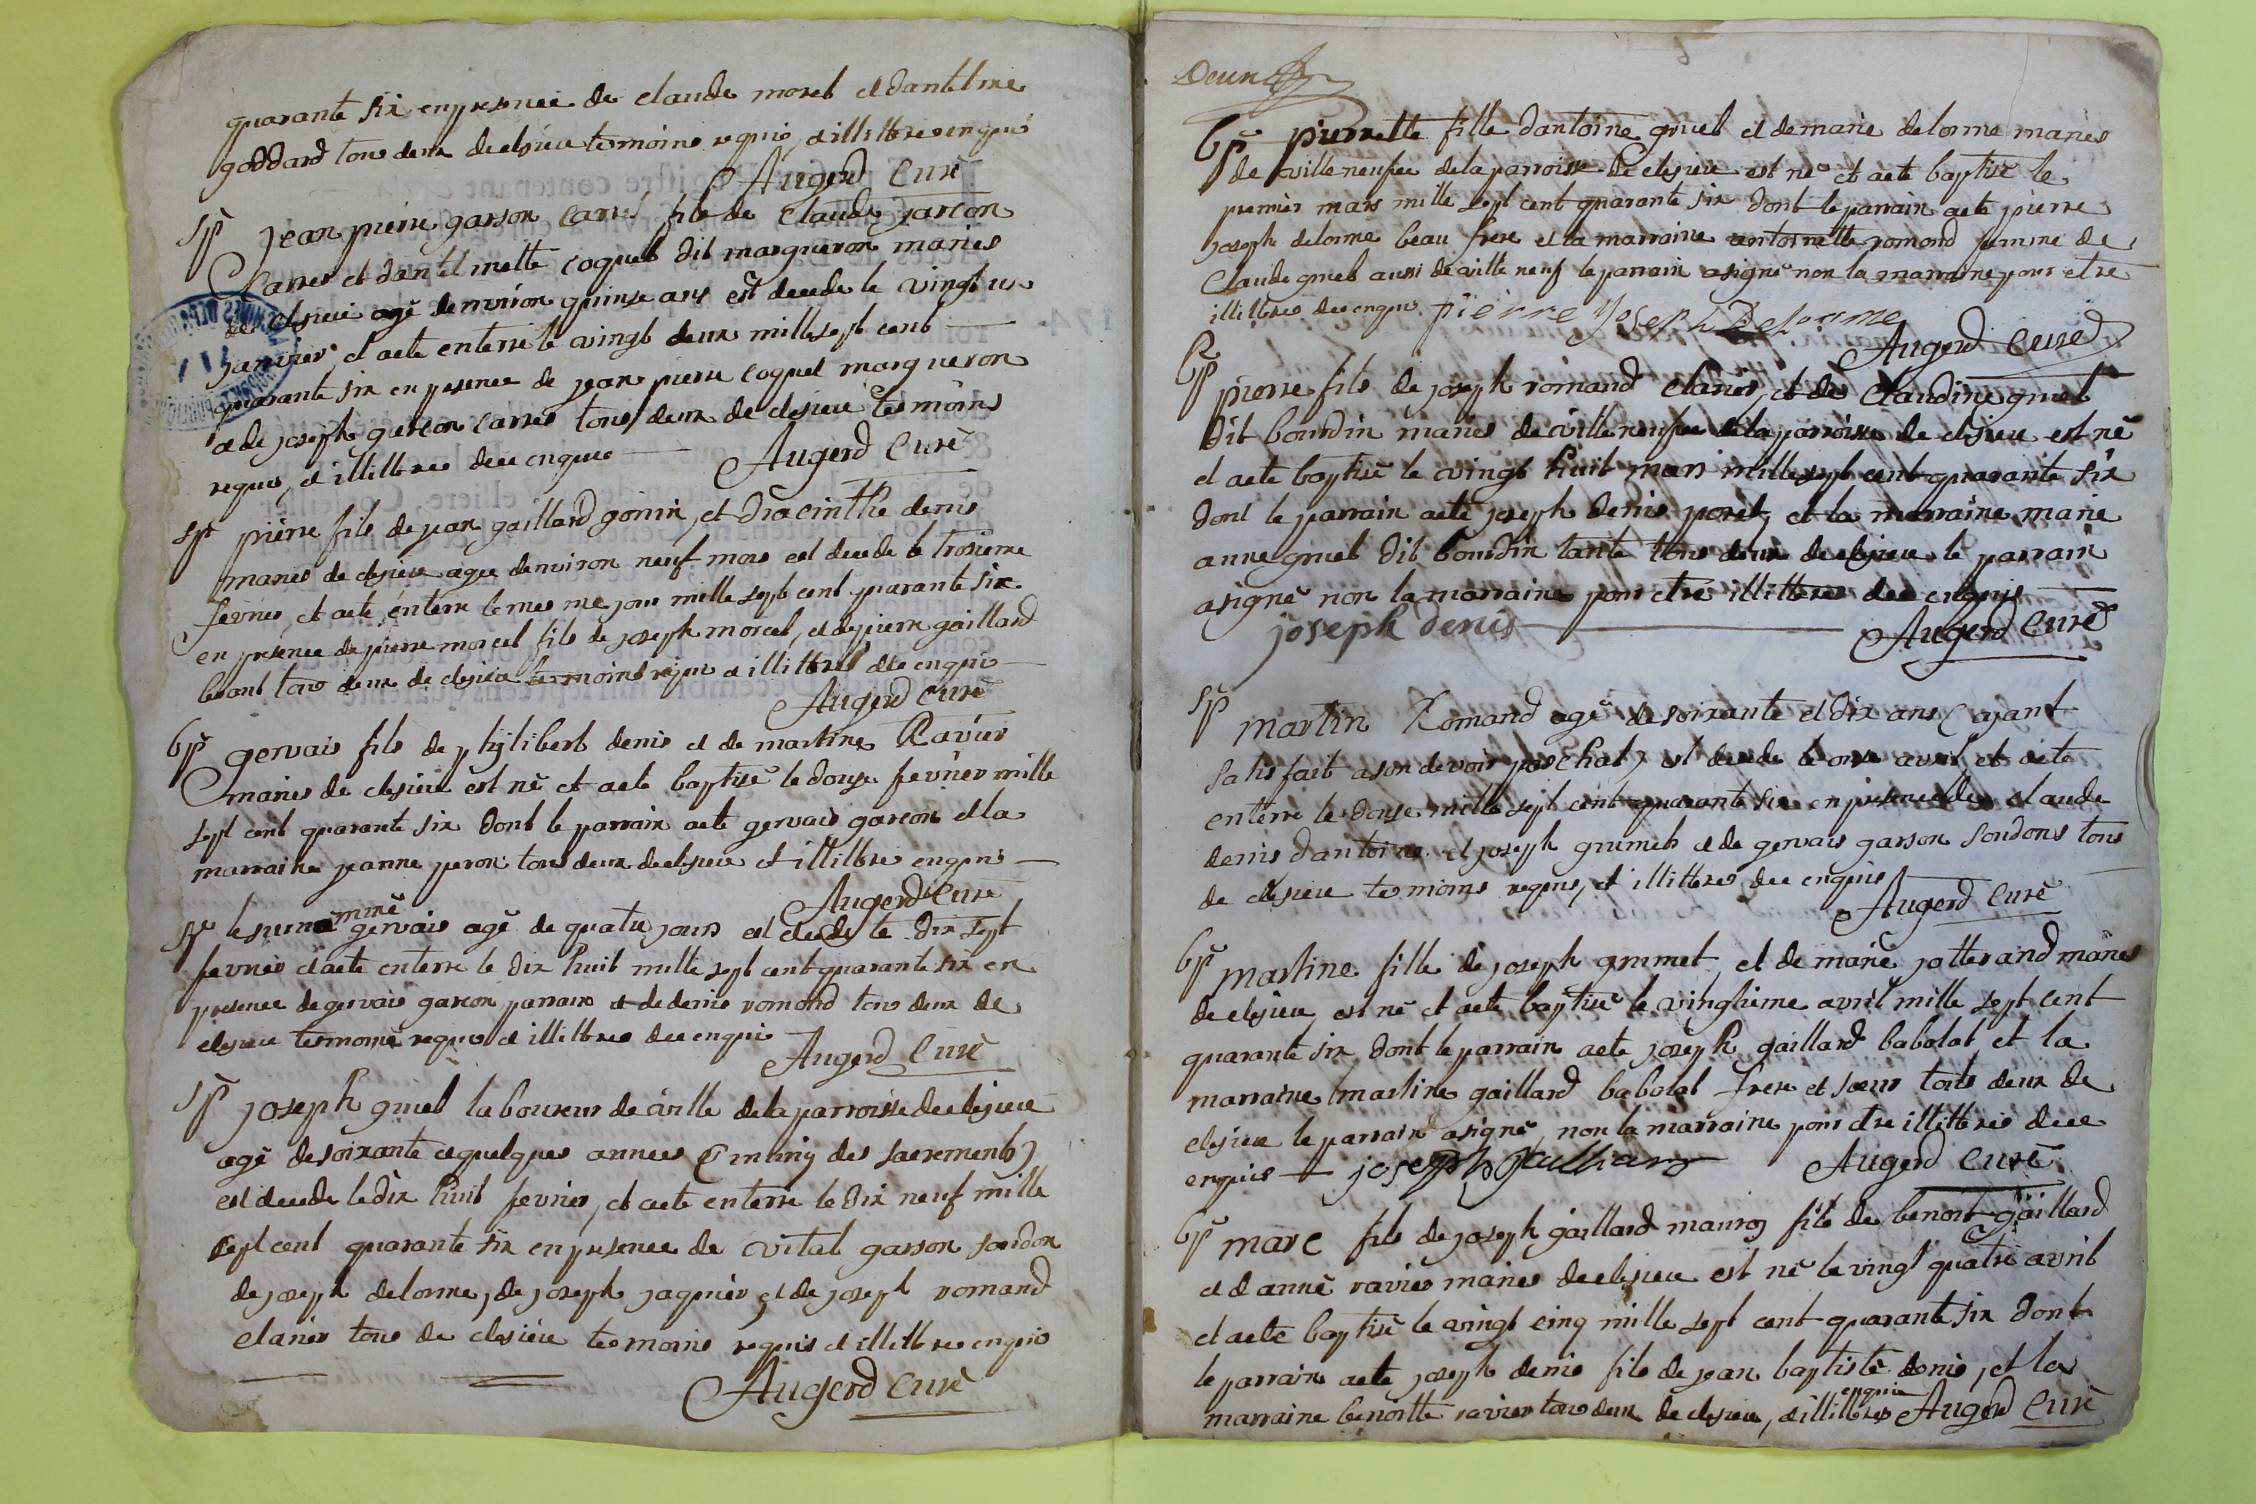 quarante six en presence de claude morel et dantelme
goddard tous deux de clesieu temoins requis, et illittres enquis
Augerd Curé
Sp jean pierre garson carres fils de Claude garcon
Carres et dantelmette coquet dit margueron maries
de clesieu agé denviron quinse ans est decede le vingt un
janvier et a eté enterré le vingt deux mille sept cent
quarante six en presence de jean pierre coquet margueron
et de joseph garcon carres tous deux de clesieu temoins
requis, et illittres de ce enquis Augerd Curé
Sp pierre fils de jean gaillard gonin, et diacinthe denis
maries de clesieu agee denviron neuf mois est decede le troisieme
fevrier, et a eté enterre le mes me jour mille sept cent quarante six
en presence de pierre morcel fils de joseph morcel, et de pierre gaillard
tous deux de clesieu temoins requis et illittres de ce enquis
Augerd Curé
bp gervais fils de philibert denis et de martine Ravier
maries de clesieu est né et a eté baptisé le douze fevrier mille
sept cent quarante six dont le parrain a eté gervais garcon et la
marraine jeanne peron tous deux de clesieu et illittres enquis
Augerd Curé
Sp le surnommé gervais agé de quatre jours est decede le dix sept
fevrier et a eté enterre le dix huit mille sept cent quarante six en
presence de gervais garcon parrain et de denis romand tous deux de
clesieu temoins requis et illittres de ce enquis
Augerd Curé
Sp joseph gruel laboureur de ville de la parroisse de clesieu
agé de soixante et quelques annees (muny des sacrements)
est decede le dix huit fevrier, et a eté enterre le dix neuf mille
sept cent quarante six en presence de vital garson soudon
de joseph delorme, de joseph jagnier, et de joseph romand
claries tous de clesieu temoins requis et illittres enquis
Augerd Curé
Deux
bp pierrette fille dantoine gruel et de marie delorme maries
de ville neufve de la parroisse de clesieu est né et a eté baptisé le
premier mars mille sept cent quarante six dont le parrain a eté pierre
joseph delorme beau frere et la marraine antoinette romond femme de
Claude gruel aussi de ville neuf le parrain a signé non la marraine pour etre
illittres de ce enquis pierre Joseph Delorme
Augerd Curé
bp pierre fils de joseph romand claries, et de Claudine gruel
dit bourdin maries de ville neufve de la parroisse de clesieu est né
et a eté baptisé le vingt huit mars mille sept cent quarante six
dont le parrain a eté joseph denis poret, et la marraine marie
anne gruel dit bourdin tante tous deux de clesieu le parrain
a signé non la marraine pour etre illittres de ce enquis
joseph denis Augerd Curé
Sp martin Romand agé de soixante et dix ans (ayant
satisfait a son devoir paschal) est decede le onse avril et a eté
enterre le douse mille sept cent quarante six en presence de claude
denis dantoine et joseph grumet et de gervais garson soudons tous
de clesieu temoins requis, et illittres de ce enquis
Augerd Curé
bp martine fille de joseph grumet et de marie jotterand maries
de clesieu est né et a eté baptisé le vingtieme avril mille sept cent
quarante six dont le parrain a eté joseph gaillard babolat et la
marraine martine gaillard babolat frere et sœur touts deux de
clesieu le parrain a signé, non la marraine pour etre illittres de ce
enquis joseph gailliard Augerd Curé
bp marc fils de joseph gaillard fils de benoit gaillard
et danne ravier maries de clesieu est né le vingt quatre avril
et a eté baptisé le vingt cinq mille sept cent quarante six dont
le parrain a eté joseph denis fils de jean baptiste denis, et la
marraine benoitte ravier tous deux de clesieu, et illittres enquis Augerd Curé